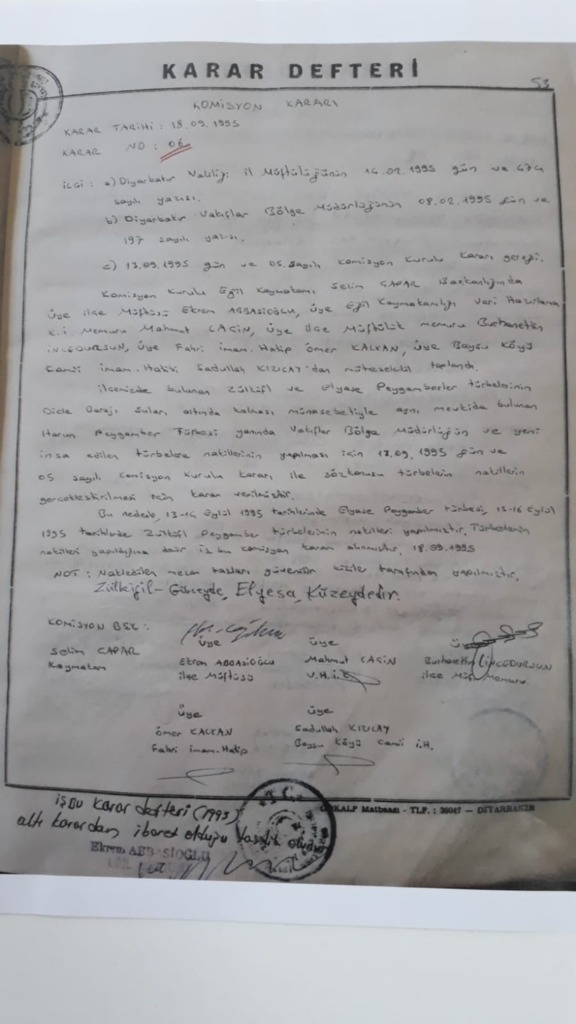 KARAR DEFTERİ
53
KOMİSYON KARARI
KARAR TARİHİ : 18.09.1995
KARAR NO : 06
İLGİ : a) Diyarbakır Valiliği İl Müftülüğünün 14.02.1995 gün ve 674
sayılı yazısı.
b) Diyarbakır Vakıflar Bölge Müdürlüğünün 08.02.1995 gün ve
197 sayılı yazısı.
c) 13.09.1995 gün ve 05 sayılı Komisyon Kurulu Kararı gereği,
Komisyon Kurulu Eğil Kaymakamı Selim ÇAPAR Başkanlığında
üye ilçe Müftüsü Ekrem ABBASİOĞLU, üye Eğil Kaymakamlığı Veri Hazırlama
K.İ Memuru Mahmut ÇAĞIN, üye ilçe Müftülük memuru Burhanettin
İNCEDURSUN, üye Fahri imam-Hatip Ömer KALKAN, üye Baysu Köyü
Camii imam-Hatibi Sadullah KIZILAY'dan müteşekkil toplandı.
ilçemizde bulunan Zülküfl ve Elyase Peygamberler türbelerinin
Dicle Barajı suları altında kalması münasebetiyle aynı mevkide bulunan
Harun Peygamber Türbesi yanında Vakıflar Bölge Müdürlüğün ve yeni
inşa edilen türbelere nakillerinin yapılması için 13.09.1995 gün ve
05 sayılı Komisyon Kurulu kararı ile sözkonusu türbelerin nakillerin
gerçekleştirilmesi için karar verilmiştir.
Bu nedenle, 13-14 Eylül 1995 tarihlerinde Elyase Peygamber türbesi, 15-16 Eylül
1995 tarihlerde Zülküfl Peygamber türbelerinin nakilleri yapılmıştır. Türbelerin
nakilleri yapıldığına dair iş bu komisyon kararı alınmıştır. 18.09.1995
NOT : Nakledilen mezar taşları güvenilir kişiler tarafından yapılmıştır.
Zülkifil - Güneyde, Elyesa, Kuzeydedir.
KOMİSYON BŞK :
Selim ÇAPAR
Kaymakam
üye
Ekrem ABBASİOĞLU
ilçe Müftüsü
üye
Mahmut ÇAĞIN
V.H.i.
Burhanettin İNCEDURSUN
ilçe Müf. Memuru.
üye
Ömer KALKAN
Fahri imam-Hatip
üye
Sadullah KIZILAY
Baysu Köyü Camii i.H.
Matbaası - TLF. : 26047 — DİYARBAKIR
işbu karar defteri (1995)
altı karardan ibaret olduğu tasdik olunur
Ekrem ABBASİOĞLU